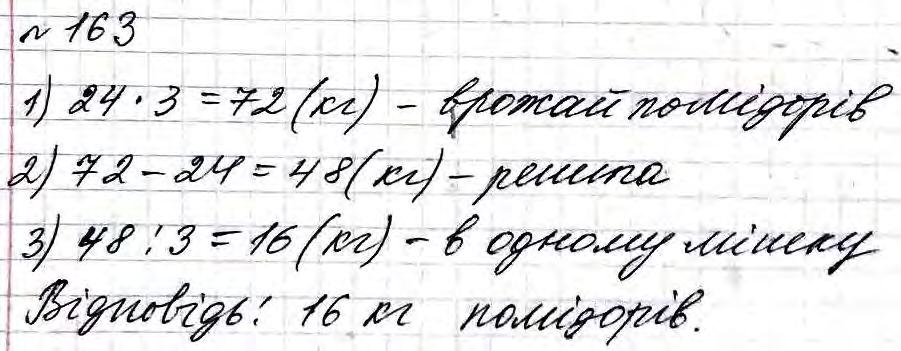 № 163
1) 24 · 3 = 72 (кг) – врожай помідорів
2) 72 – 24 = 48 (кг) – решта
3) 48 : 3 = 16 (кг) – в одному мішку
Відповідь: 16 кг помідорів.